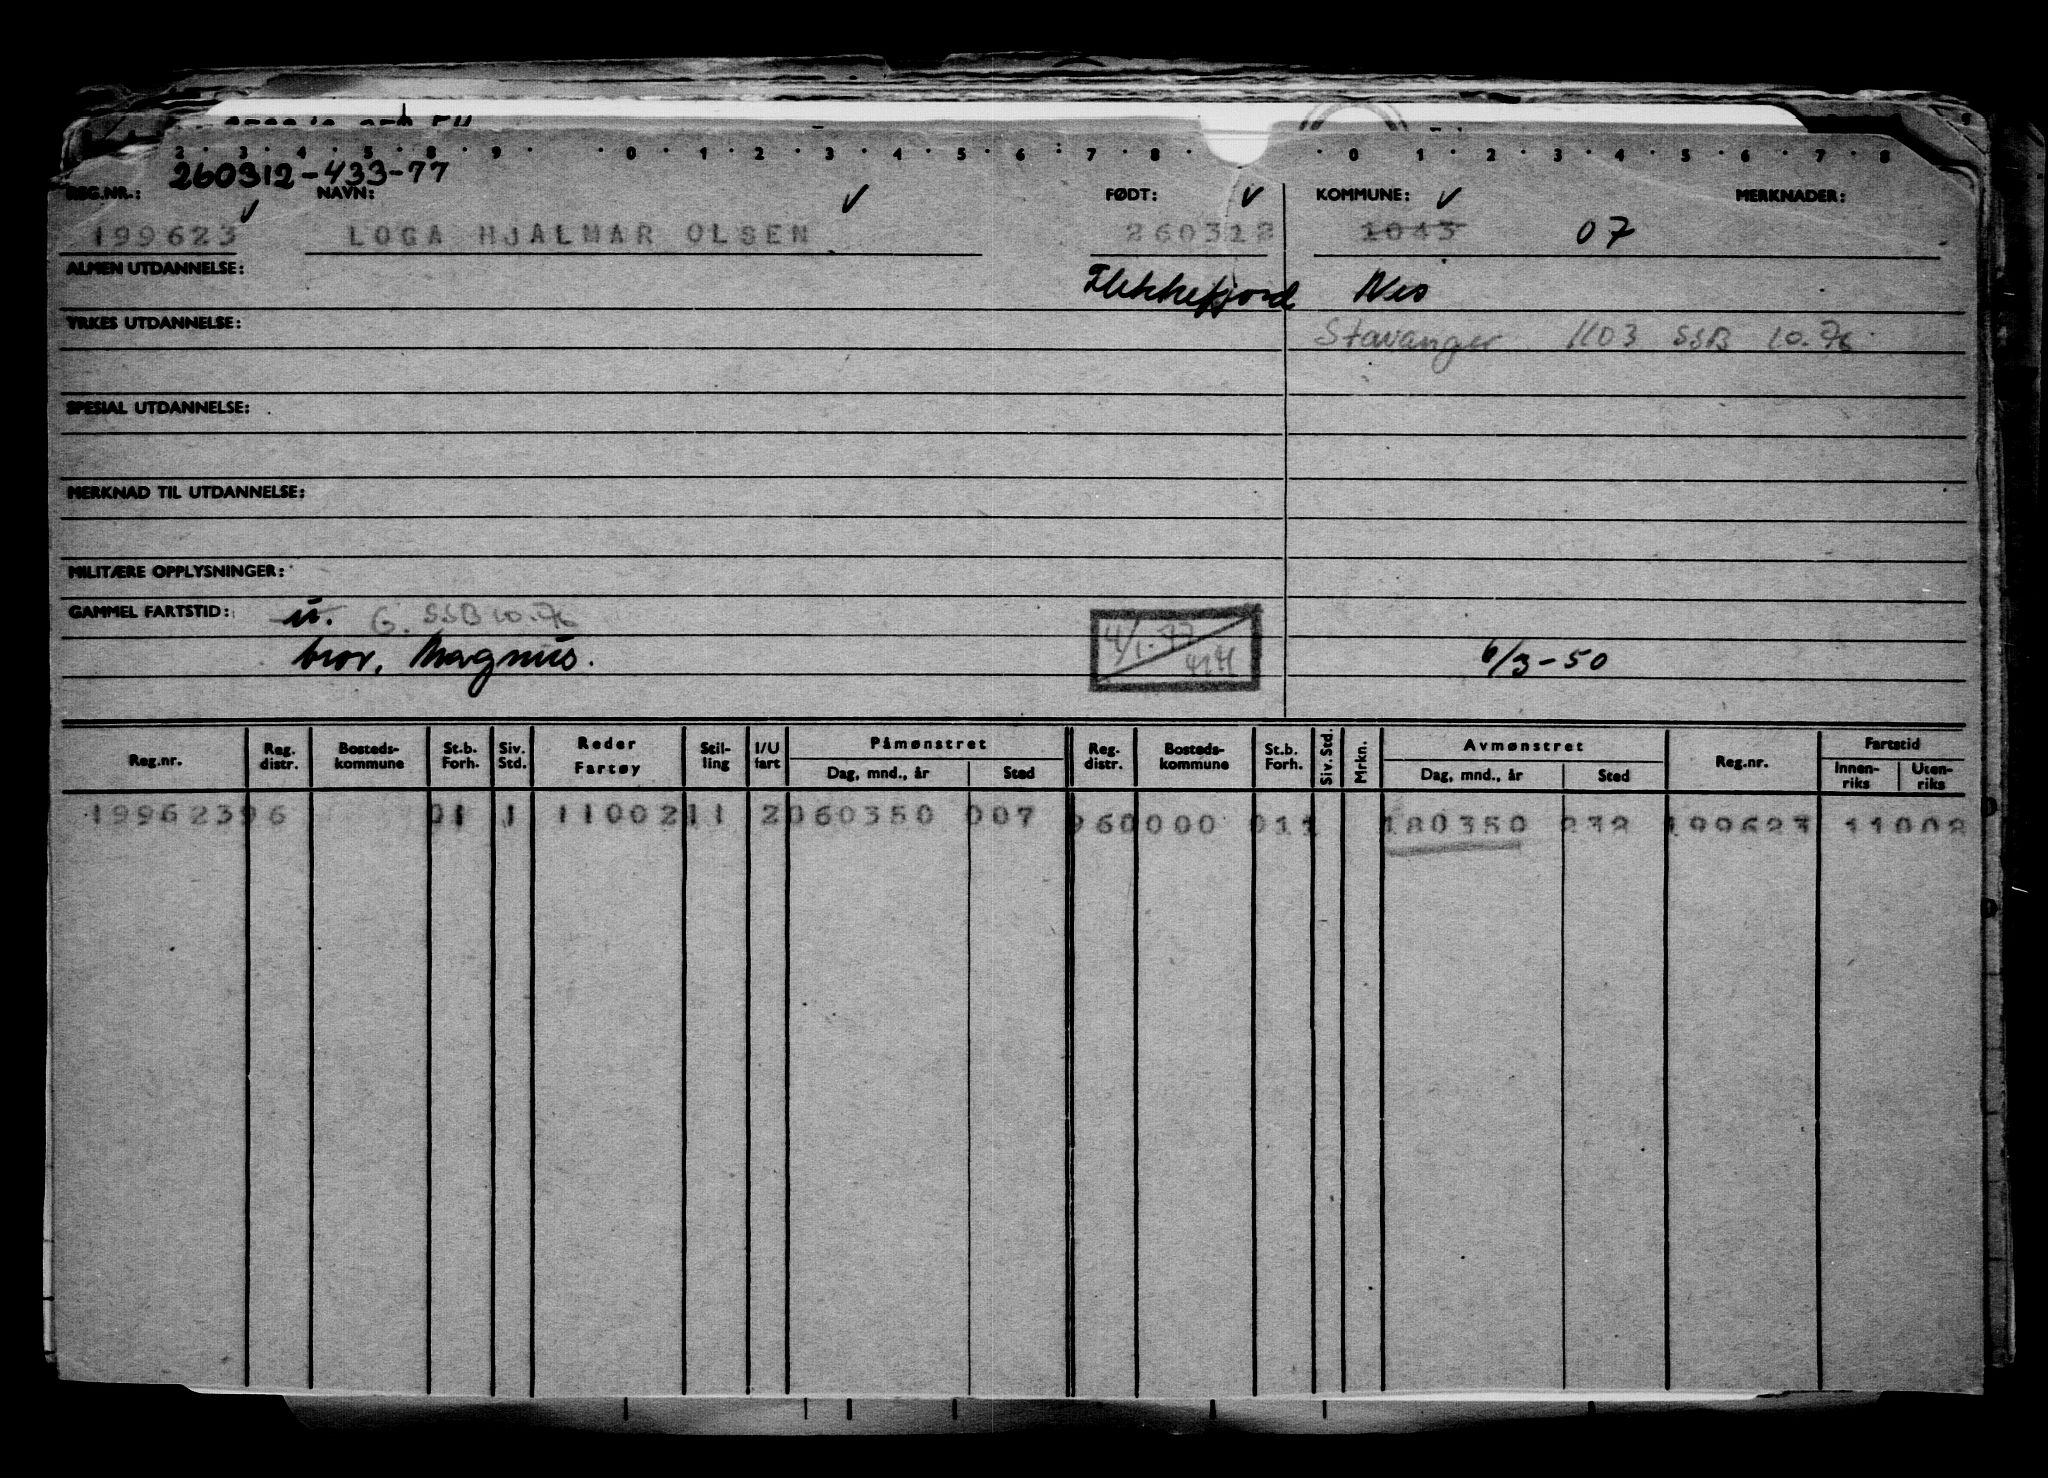 2 3 4 5 8 9 0 1 2 3 4 5 6 7 8 0 1 2 3 4 5 6 7 8
260312-433-77
REG.NR.: NAVN: FØDT: KOMMUNE: MERKNADER:
199623 LOGA HJALMAR OLSEN 260312 1043 07
ALMEN UTDANNELSE: Flekkefjord Nes
YRKES UTDANNELSE: Stavanger 1103 SSB 10.76
SPESIAL UTDANNELSE:
MERKNAD TIL UTDANNELSE:
MILITÆRE OPPLYSNINGER:
GAMMEL FARTSTID: u. G. SSB 10.76
bror, Magnus. 4/1-77 6/3-50
Reg.nr. Reg. distr. Bosteds-kommune St.b. Forh. Siv. Std. Reder Fartøy Stil-ling I/U fart Påmønstret Dag, mnd., år Sted Reg. distr. Bosteds-kommune St.b. Forh. Siv. Std. Mrkn. Avmønstret Dag, mnd., år Sted Reg.nr. Fartstid Innen-riks Uten-riks
19962396 01 1 1100211 2060350 007 960000 011 180350 232 199623 11002